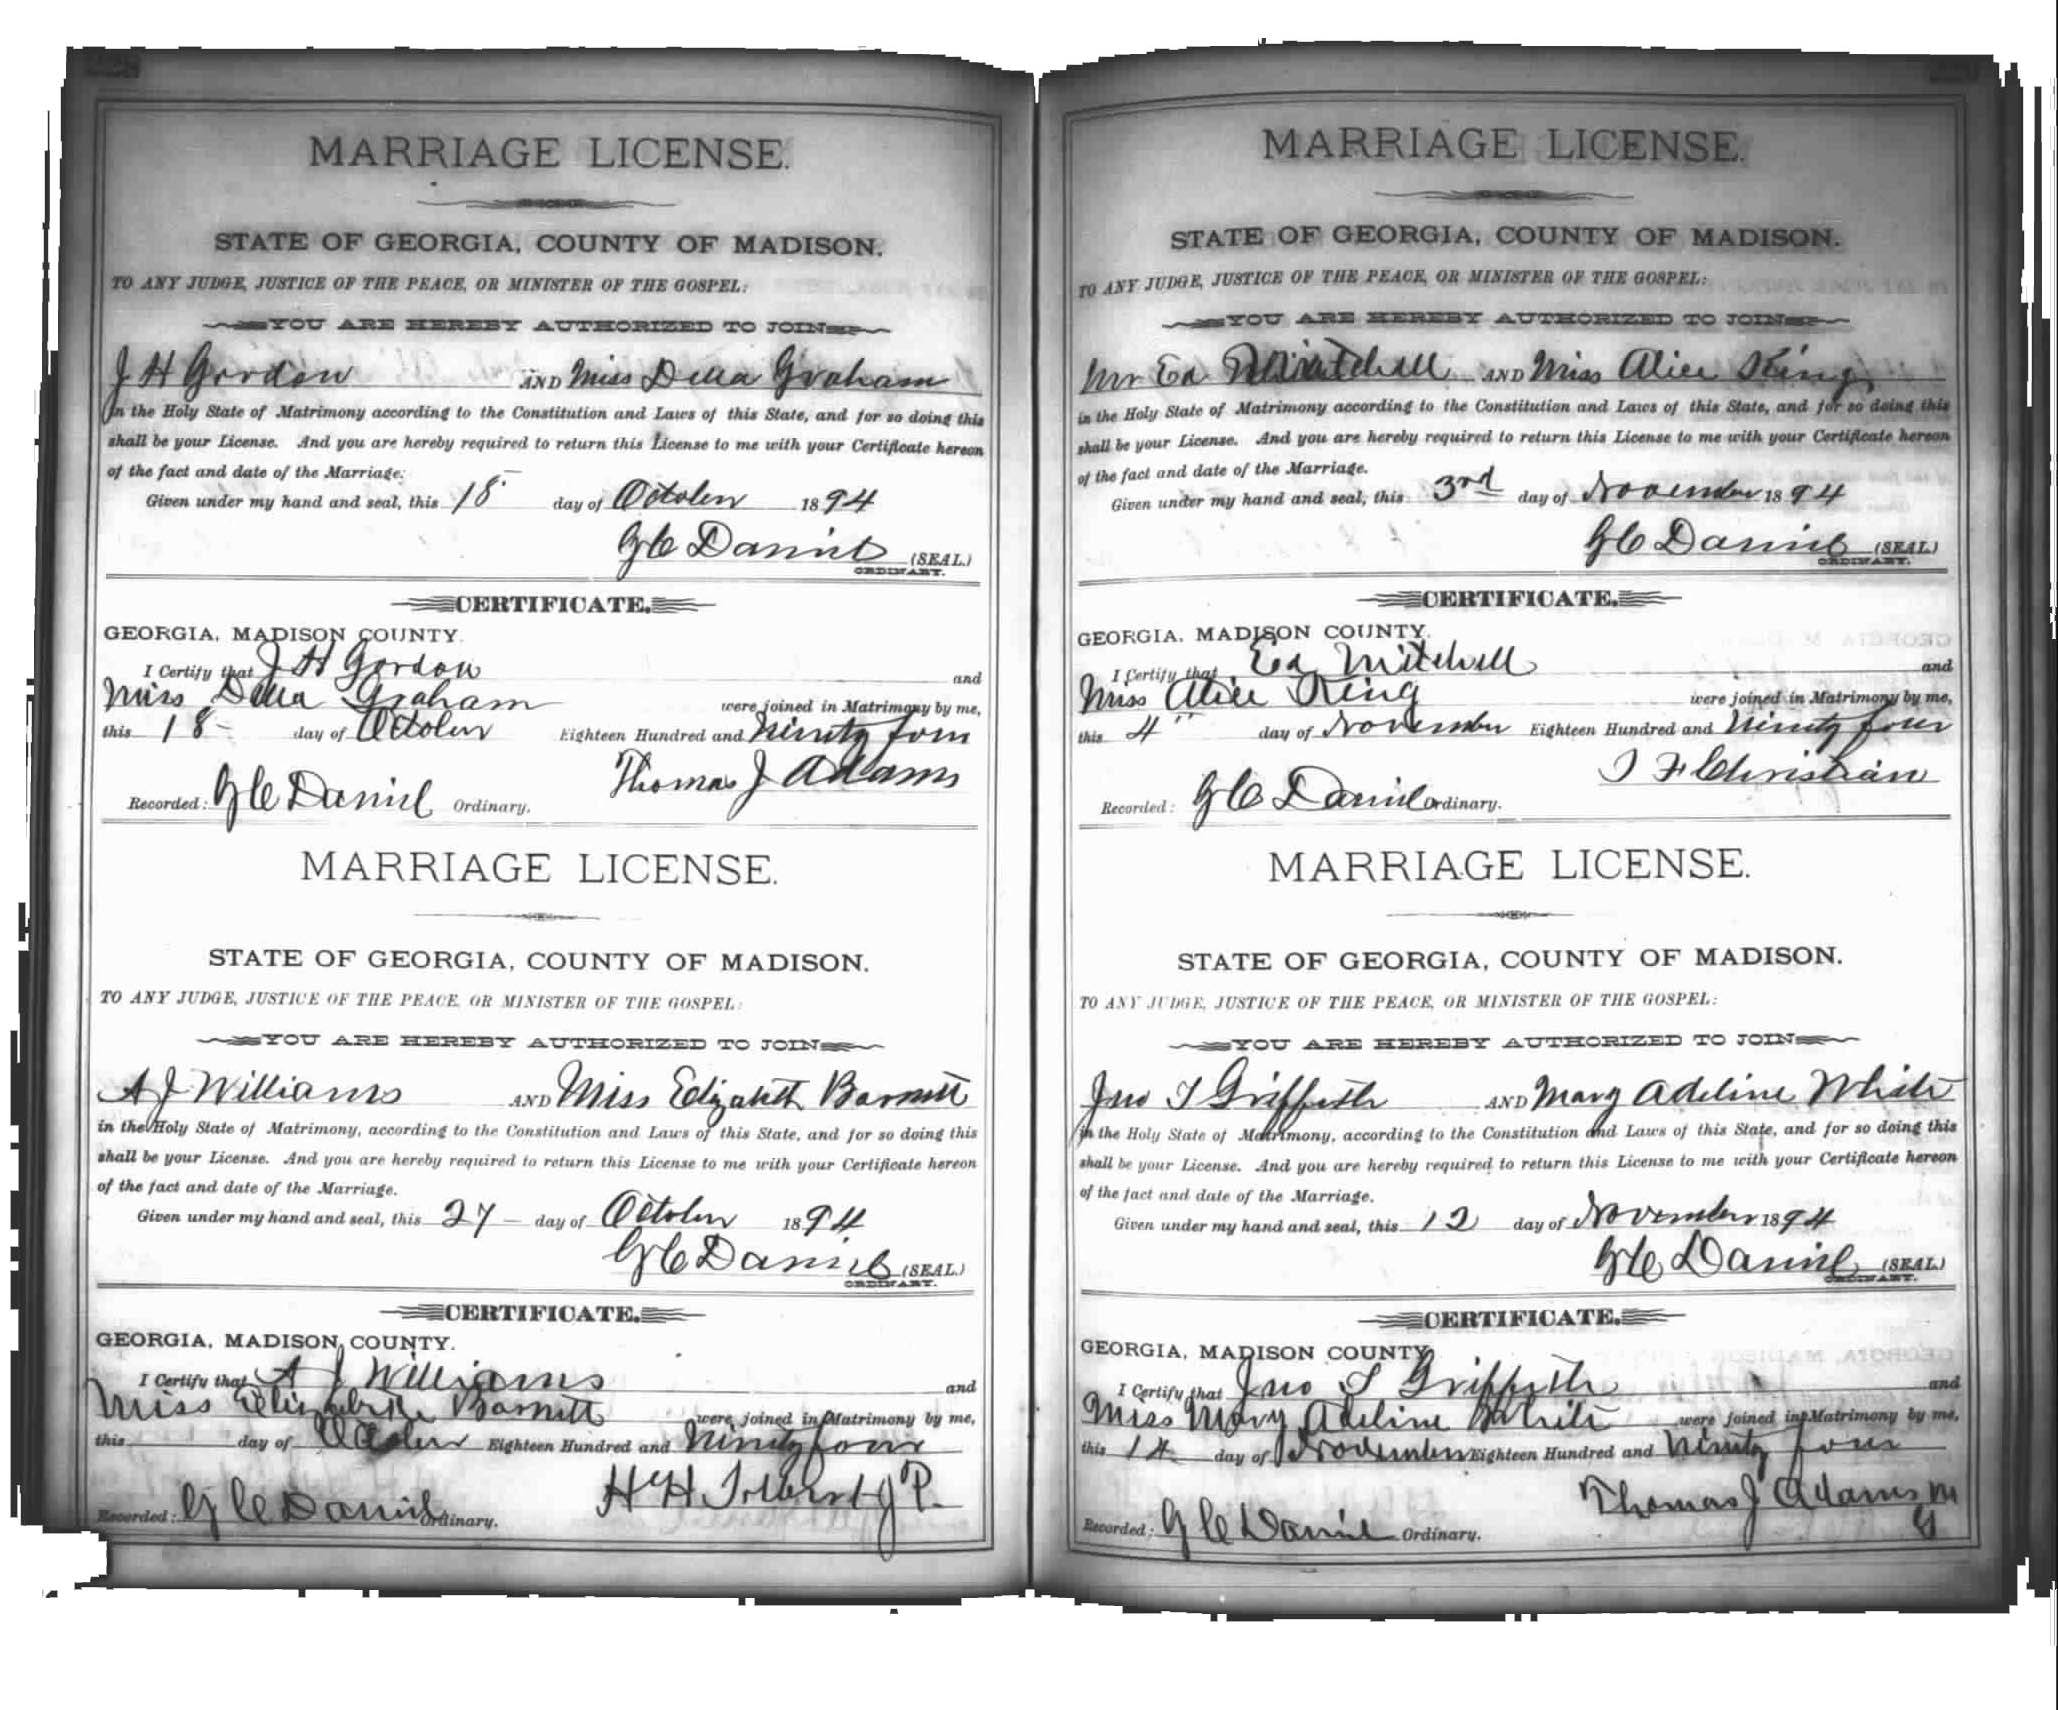 MARRIAGE LICENSE.
STATE OF GEORGIA, COUNTY OF MADISON.
TO ANY JUDGE, JUSTICE OF THE PEACE, OR MINISTER OF THE GOSPEL:
YOU ARE HEREBY AUTHORIZED TO JOIN
J H Gordon AND Miss Della Graham
in the Holy State of Matrimony according to the Constitution and Laws of this State, and for so doing this
shall be your License. And you are hereby required to return this License to me with your Certificate hereon
of the fact and date of the Marriage.
Given under my hand and seal, this 18 day of October 1894
G C Daniel (SEAL.)
ORDINARY.
CERTIFICATE.
GEORGIA, MADISON COUNTY.
I Certify that J H Gordon and
Miss Della Graham were joined in Matrimony by me,
this 18 day of October Eighteen Hundred and Ninety four
Thomas J Adams
Recorded: G C Daniel Ordinary.
MARRIAGE LICENSE.
STATE OF GEORGIA, COUNTY OF MADISON.
TO ANY JUDGE, JUSTICE OF THE PEACE, OR MINISTER OF THE GOSPEL:
YOU ARE HEREBY AUTHORIZED TO JOIN
A J Williams AND Miss Elizabeth Barnett
in the Holy State of Matrimony, according to the Constitution and Laws of this State, and for so doing this
shall be your License. And you are hereby required to return this License to me with your Certificate hereon
of the fact and date of the Marriage.
Given under my hand and seal, this 27 day of October 1894
G C Daniel (SEAL.)
ORDINARY.
CERTIFICATE.
GEORGIA, MADISON COUNTY.
I Certify that A J Williams and
Miss Elizabeth Barnett were joined in Matrimony by me,
this day of October Eighteen Hundred and Ninety four
H H Tolbert J P.
Recorded: G C Daniel Ordinary.
MARRIAGE LICENSE.
STATE OF GEORGIA, COUNTY OF MADISON.
TO ANY JUDGE, JUSTICE OF THE PEACE, OR MINISTER OF THE GOSPEL:
YOU ARE HEREBY AUTHORIZED TO JOIN
Mr Ed Mitchell AND Miss Alice King
in the Holy State of Matrimony according to the Constitution and Laws of this State, and for so doing this
shall be your License. And you are hereby required to return this License to me with your Certificate hereon
of the fact and date of the Marriage.
Given under my hand and seal, this 3rd day of November 1894
G C Daniel (SEAL.)
ORDINARY.
CERTIFICATE.
GEORGIA, MADISON COUNTY.
I Certify that Ed Mitchell and
Miss Alice King were joined in Matrimony by me,
this 4" day of November Eighteen Hundred and Ninety four
Christian
Recorded: G C Daniel Ordinary.
MARRIAGE LICENSE.
STATE OF GEORGIA, COUNTY OF MADISON.
TO ANY JUDGE, JUSTICE OF THE PEACE, OR MINISTER OF THE GOSPEL:
YOU ARE HEREBY AUTHORIZED TO JOIN
Jno Griffeth AND Mary Adeline White
in the Holy State of Matrimony, according to the Constitution and Laws of this State, and for so doing this
shall be your License. And you are hereby required to return this License to me with your Certificate hereon
of the fact and date of the Marriage.
Given under my hand and seal, this 12 day of November 1894
G C Daniel (SEAL.)
ORDINARY.
CERTIFICATE.
GEORGIA, MADISON COUNTY
I Certify that Jno Griffeth and
Miss Mary Adeline White were joined in Matrimony by me,
this 14 day of November Eighteen Hundred and Ninety four
Thomas J Adams M
G
Recorded: G C Daniel Ordinary.